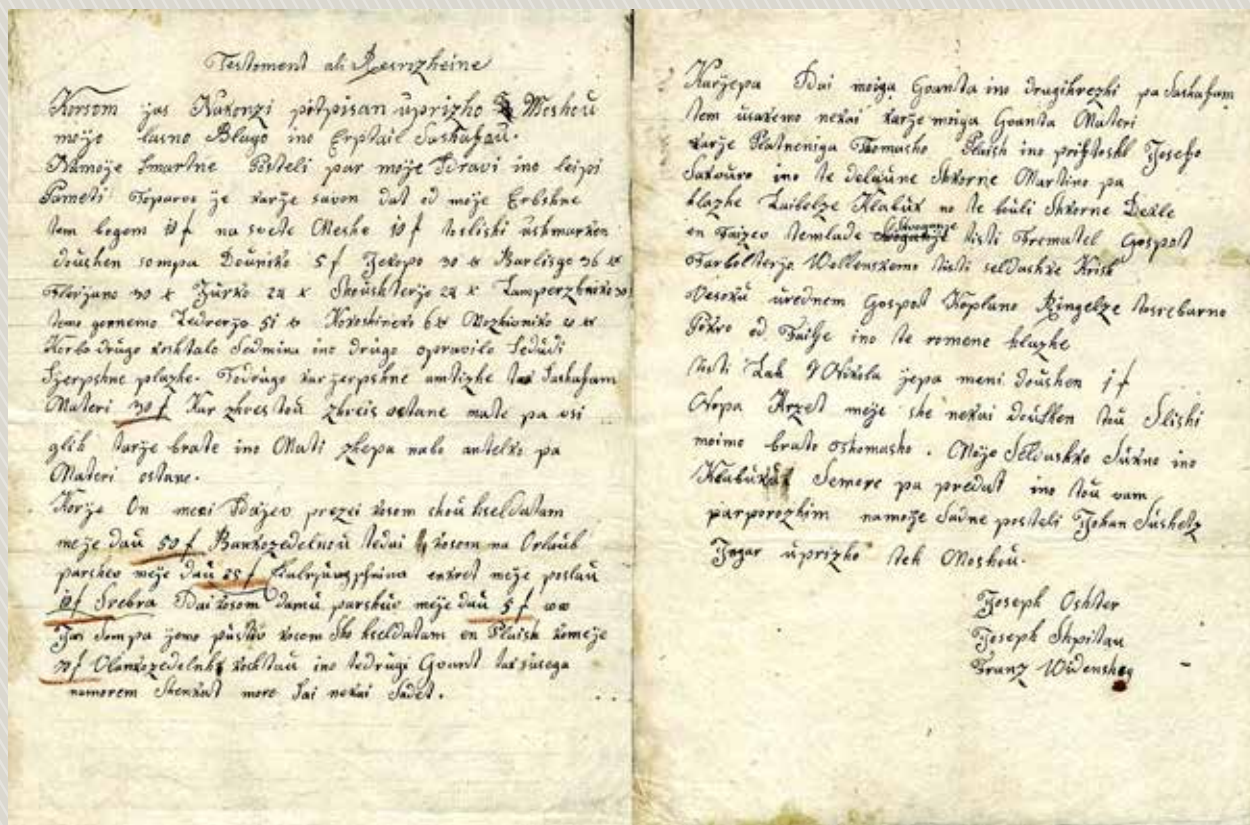 Testoment ali Resnzheine
Korsom jas Nakonzi potpisan uprizho Moshou
moijo lasno Blago ino Erptail Saskafau.
Namoije Smartne Posteli par moije Sdravi ino leipi
Pameti Toparvo je karje savon dat od moije Erbshne
tem bogem 10 f na svete Meshe 10 f
doushen sompa Douniko 5 f Jekopo 30 x Barlisgo 36 x
Florjano 30 x Jurko 24 x Skoushterjo 24 x Lamperzhniko 30
temo Ledrerjo 51 x 6 x
Korbo drugo koshtalo Sedmina ino drugo opravilo Sedudi
Sjerpshne plazhe. Todrugo kar jerpshne amtizhe Saskafam
Materi 30 f Kar zhrestou zhreis ostane mate pa vsi
glih karje brate ino Mati zhepa nabo antelko pa
Materi ostane.
Korje On meni prezei kosom shou kseldatam
meije dau 50 f Bankozedelnou tedai kosom na Orlaub
parshov meije dau 25 f enkret meije poslau
10 f Srebra Dai kosom damu parshuv meije dau 5 f
Jas Sompa jemo pustiv kosom sho kseldatam en Plaish komeije
70 f koshtau ino tedrugi Goant tak susega
namorem Shenkat more Sai nekai Sadet.
Karjepa Dai moiga Goanta ino drugihrezhi pa Saskafam
tem usakemo nekai karje moiga Goanta Materi
karje Platneniga Tomasho Plaish ino priftoshl Josefo
Sakouro ino te delaune Shkorne Martino pa
hlazhe Laibelze Klabuk no te buli Shkorne Dekle
en Faizev temlade tisti Fremutel Gospot
Farbolterjo Wollenskemo tisti seldashke Krish
Visoku urednem Gospot Koplano Ringelze tosrebarno
Pokro od Faifje ino te romene hlazhe
tisti Lah jepa meni doushen 1 f
meije she nekai doushen tou Slishi
moimo brato Tshomasho. Moijo Seldashko Sukno ino
Klabuk Semore pa predat ino tou vam
parporozhim namoije Sadne posteli Johan Sushetz
Jager uprizho teh Moshou.
Joseph Oshter
Joseph Shpitau
Franz Widensheg